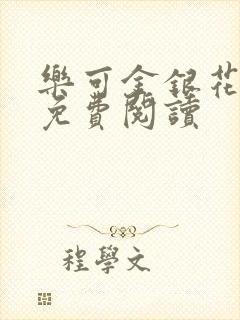 樂可金銀花
免費閱讀
程學文